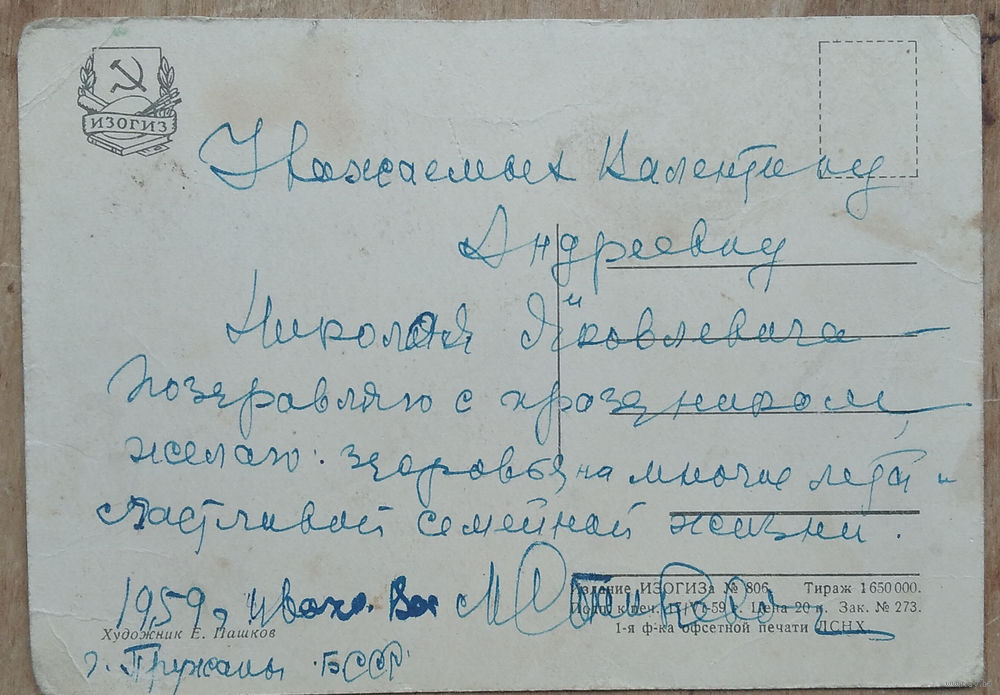 ИЗОГИЗ
Уважаемых Валентину
Андреевну
и
Николая Яковлевича
поздравляю с праздником
желаю. здоровья, на многие лета и
счастливой семейной жизни.
1959 г
Издание ИЗОГИЗа № 806. Тираж 1 650 000.
Подп. к печ. 15/VI-59 г. Цена 20 к. Зак. № 273.
1-я ф-ка офсетной печати ЛСНХ
Художник Е. Пашков
г. Пружаны БССР